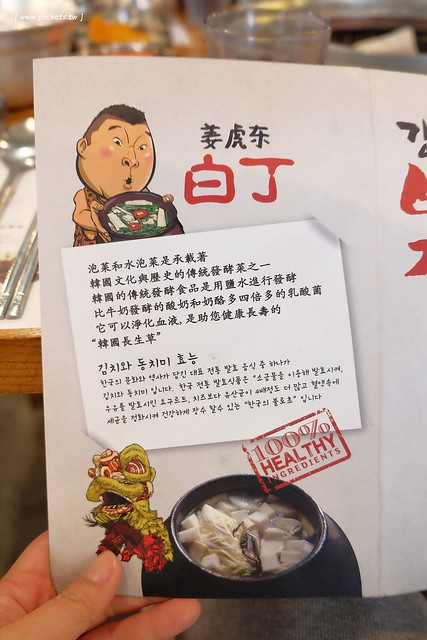 [ www.pockets.tw ]
姜虎东
白丁
泡菜和水泡菜是承載著
韓國文化與歷史的傳統發酵菜之一
韓國的傳統發酵食品是用鹽水進行發酵
比牛奶發酵的酸奶和奶酪多四倍多的乳酸菌
它可以淨化血液,是助您健康長壽的
“韓國長生草”
김치와 동치미 효능
한국의 문화와 역사가 담긴 대표 전통 발효 음식 중 하나가
김치와 동치미 입니다. 한국 전통 발효식품은 "소금물을 이용해 발효시켜,
우유를 발효시킨 요구르트, 치즈보다 유산균이 4배정도 더 많고 혈액속에
세균을 정화시켜 건강하게 장수 할수 있는 "한국의 불로초" 입니다
100%
HEALTHY
INGREDIENTS